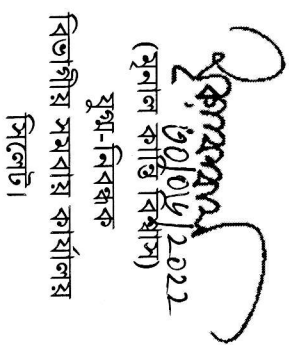 2022
(মৃনাল কান্তি বিশ্বাস)
যুগ্ম-নিবন্ধক
বিভাগীয় সমবায় কার্যালয়
সিলেট।